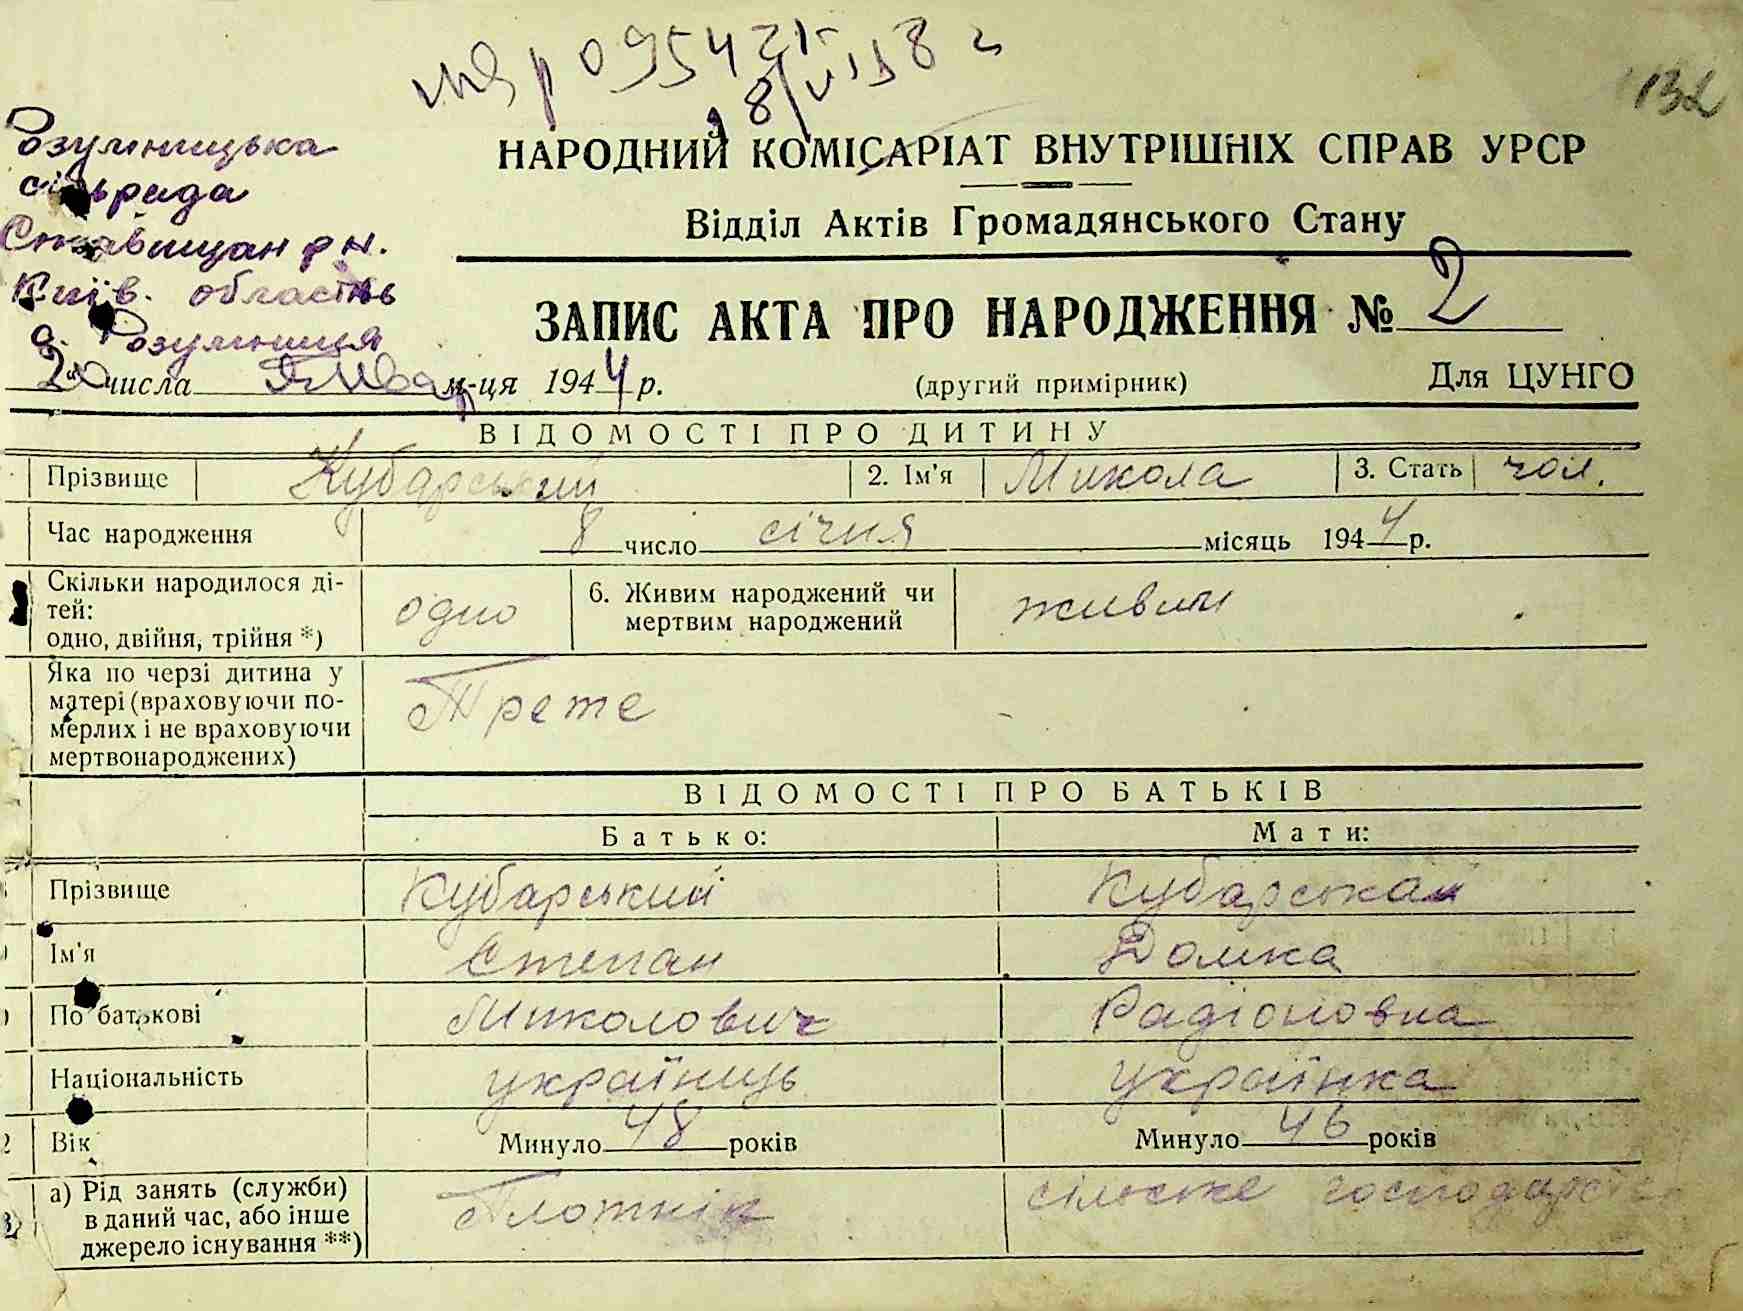 132
НАРОДНИЙ КОМІСАРІАТ ВНУТРІШНІХ СПРАВ УРСР
Відділ Актів Громадянського Стану
Розумницька
сільрада
Ставищан р н.
Київ. область
с. Розумниця
ЗАПИС АКТА ПРО НАРОДЖЕННЯ № 2
числа м-ця 1944 р. (другий примірник) Для ЦУНГО
ВІДОМОСТІ ПРО ДИТИНУ
Прізвище Кубарський 2. Ім'я Микола 3. Стать чол.
Час народження 8 число січня місяць 1944 р.
Скільки народилося ді-
тей:
одно, двійня, трійня *) одно 6. Живим народжений чи
мертвим народжений живим
Яка по черзі дитина у
матері (враховуючи по-
мерлих і не враховуючи
мертвонароджених) Трете
ВІДОМОСТІ ПРО БАТЬКІВ
Батько: Мати:
Прізвище Кубарський Кубарськая
Ім'я Степан Домка
По батькові Миколович Радіоновна
Національність україниць українка
Вік Минуло 48 років Минуло 46 років
а) Рід занять (служби)
в даний час, або інше
джерело існування **) Плотнік сільське господарство